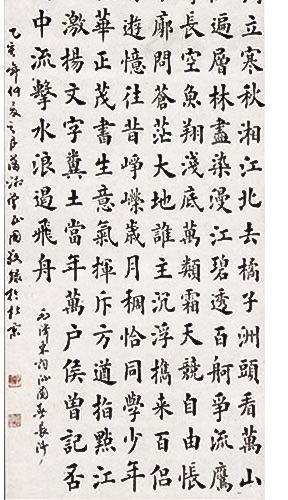 立寒秋湘江北去橘子洲頭看萬山
遍層林盡染漫江碧透百舸爭流鷹
長空魚翔淺底萬類霜天競自由悵
廓問蒼茫大地誰主沉浮攜來百侶
遊憶往昔崢嶸歲月稠恰同學少年
華正茂書生意氣揮斥方遒指點江
激揚文字糞土當年萬户侯曾記否
中流擊水浪遏飛舟
毛澤東詞沁園春長沙
乙亥年仲夏之 於北京